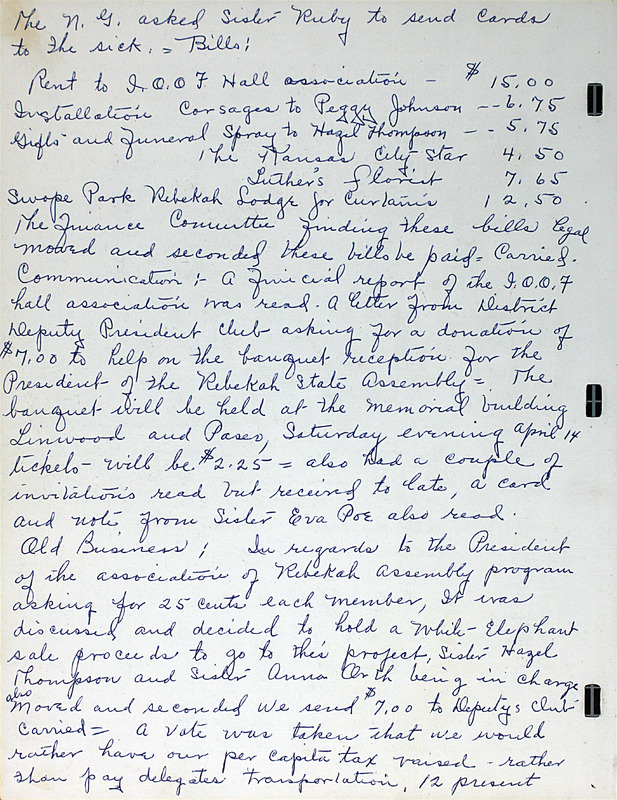 The N. G. asked Sister Ruby to send cards
to the sick. = Bills;
Rent to I.O.O.F Hall association - $ 15.00
Installation Corsages to Peggy Johnson -- 6.75
Gifts and Funeral Spray to Hazel Thompson -- 5.75
The Kansas City Star 4.50
Luther's florist 7.65
Swope Park Rebekah Lodge for Curtains 12.50
The Finance Committe finding these bills legal
moved and seconded these bills be paid = Carried.
Communication; - A finicial report of the I.O.O.F
hall association was read. A letter from District
Deputy President Club asking for a donation of
$7.00 to help on the banquet reception for the
President of the Rebekah State Assembly = The
banquet will be held at the Memorial building
Linwood and Paseo, Saturday evening April 14
tickets - will be $2.25 = also had a couple of
invitations read but received to late, a card
and note from Sister Eva Poe also read.
Old Business; In regards to the President
of the association of Rebekah Assembly program
asking for 25 cents each member, It was
discussed and decided to hold a White-Elephant
sale proceeds to go to this project, Sister Hazel
Thompson and Sister Anna Orth being in charge
also
Moved and seconded we send $7.00 to Deputys Club
Carried = A vote was taken that we would
rather have our per capita tax raised - rather
than pay delegates transportation, 12 present